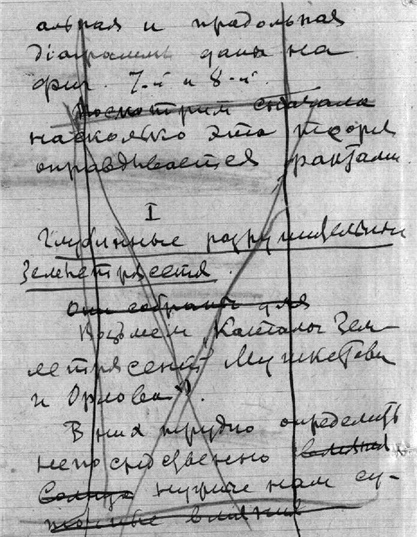 альная и продольная
диаграммы даны на
фиг. 7-й и 8-й.
Посмотрим сначала
насколько эта теория
оправдывается фактами.
I
Глубинные разрушительные
землетрясения.
Они собраны для
Возьмем "Каталог Зем-
летрясений" Мушкетова
и Орлова
В них трудно определить
непосредственно влияние
Солнца нужные нам су-
точные влияния